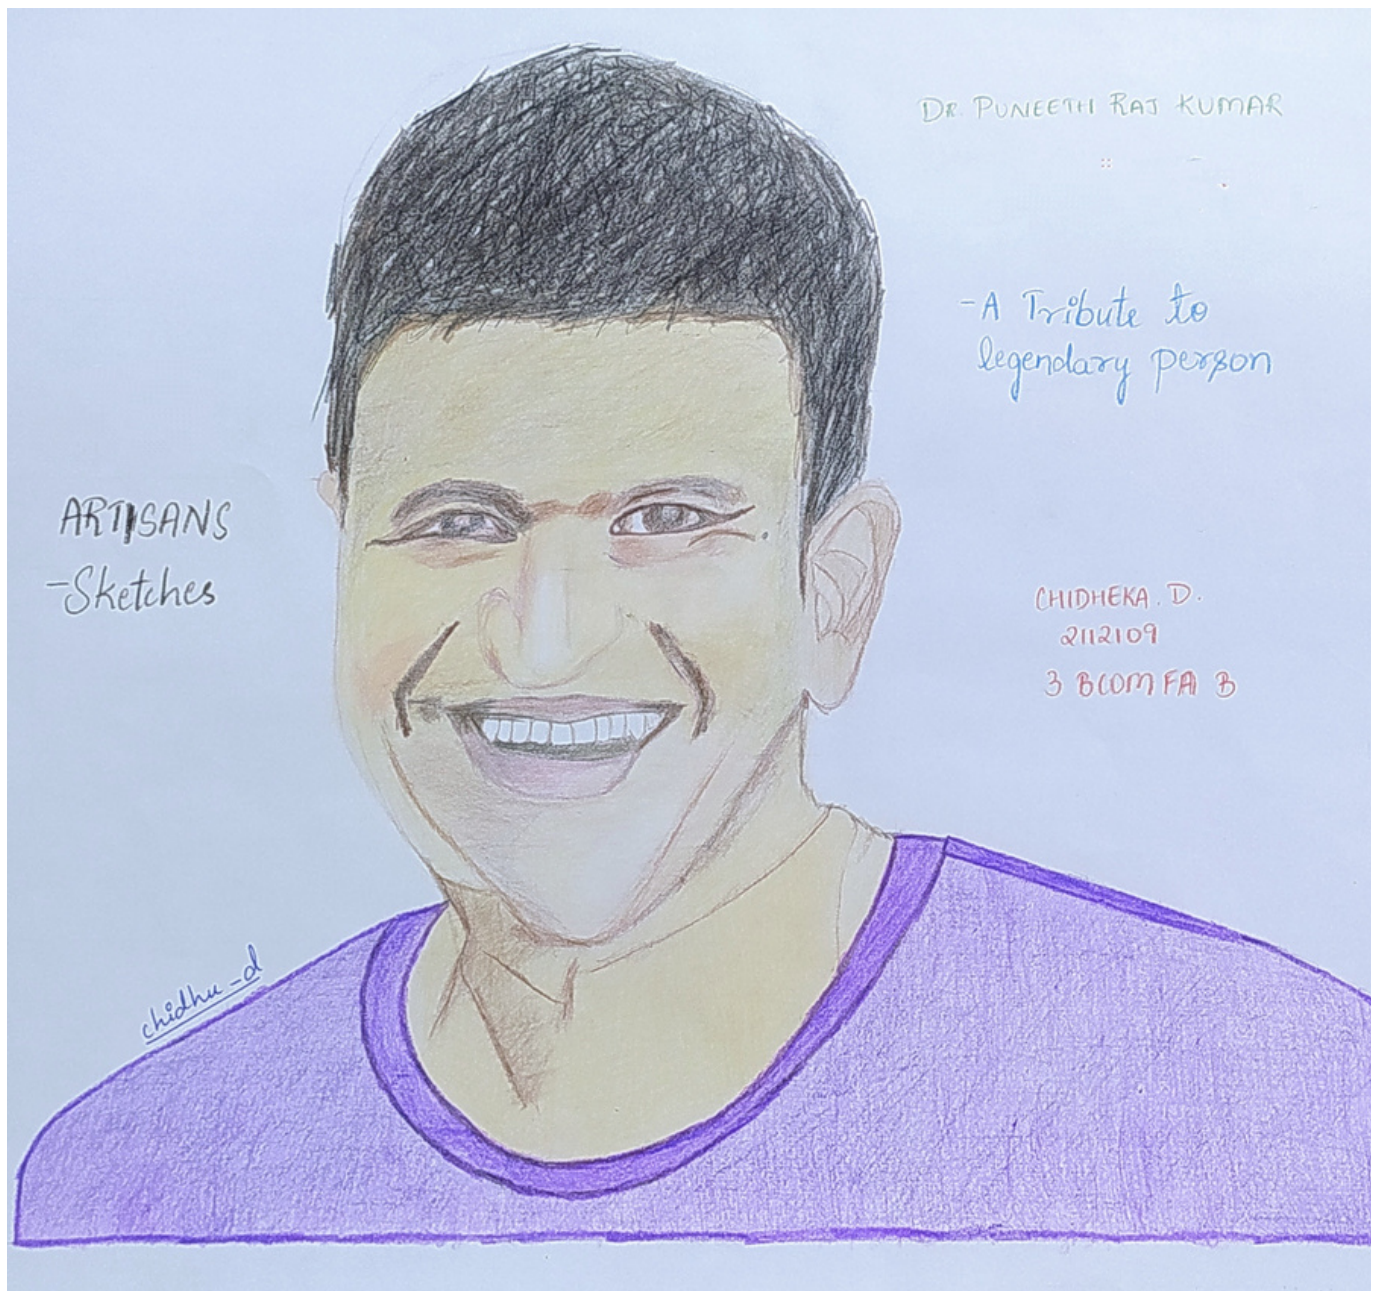 DR. PUNEETH RAJ KUMAR
-A Tribute to
legendary person
ARTISANS
-Sketches
CHIDHEKA. D.
2112109
3 BCOM FA B
chidhu-d